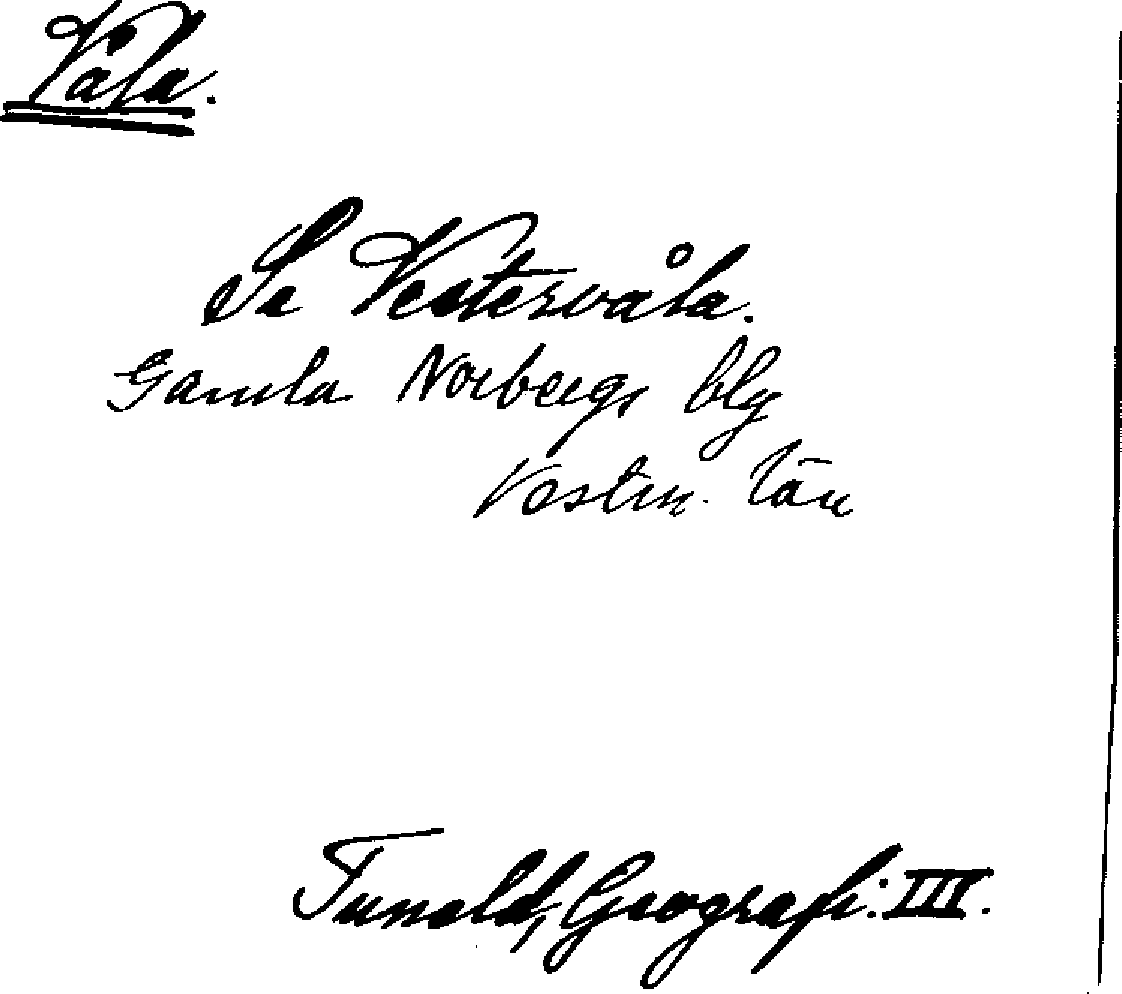 Våla.
Se Vestervåla.
Gamla Norbergs blg
Vestm. län
Tuneld, Geografi. III.